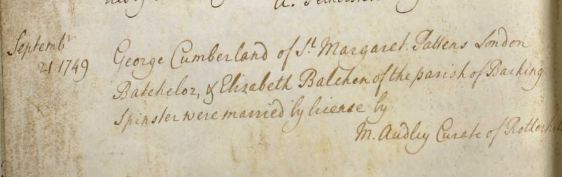 Septemb.r
21 1749
George Cumberland of St. Margaret Pattens London
Batchelor, & Elizabeth Balchen of the parish of Barking
Spinster were married by license by
M. Audley Curate of